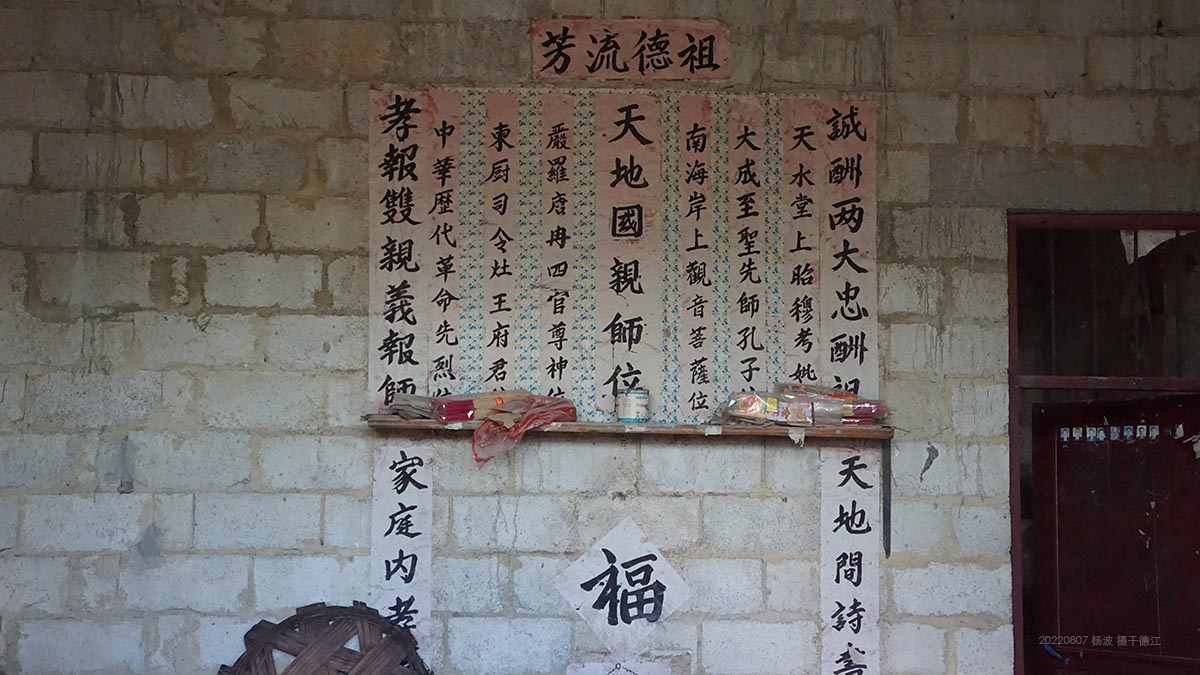 祖德流芳
誠酬两大忠酬祖
天水堂上昭穆考妣
大成至聖先師孔子
南海岸上觀音菩薩位
天地國親師位
嚴羅唐冉四官尊神位
東厨司令灶王府君
中華歷代革命先烈
孝報雙親義報師
天地間詩書
家庭内孝
福
20220807 杨波 摄于德江